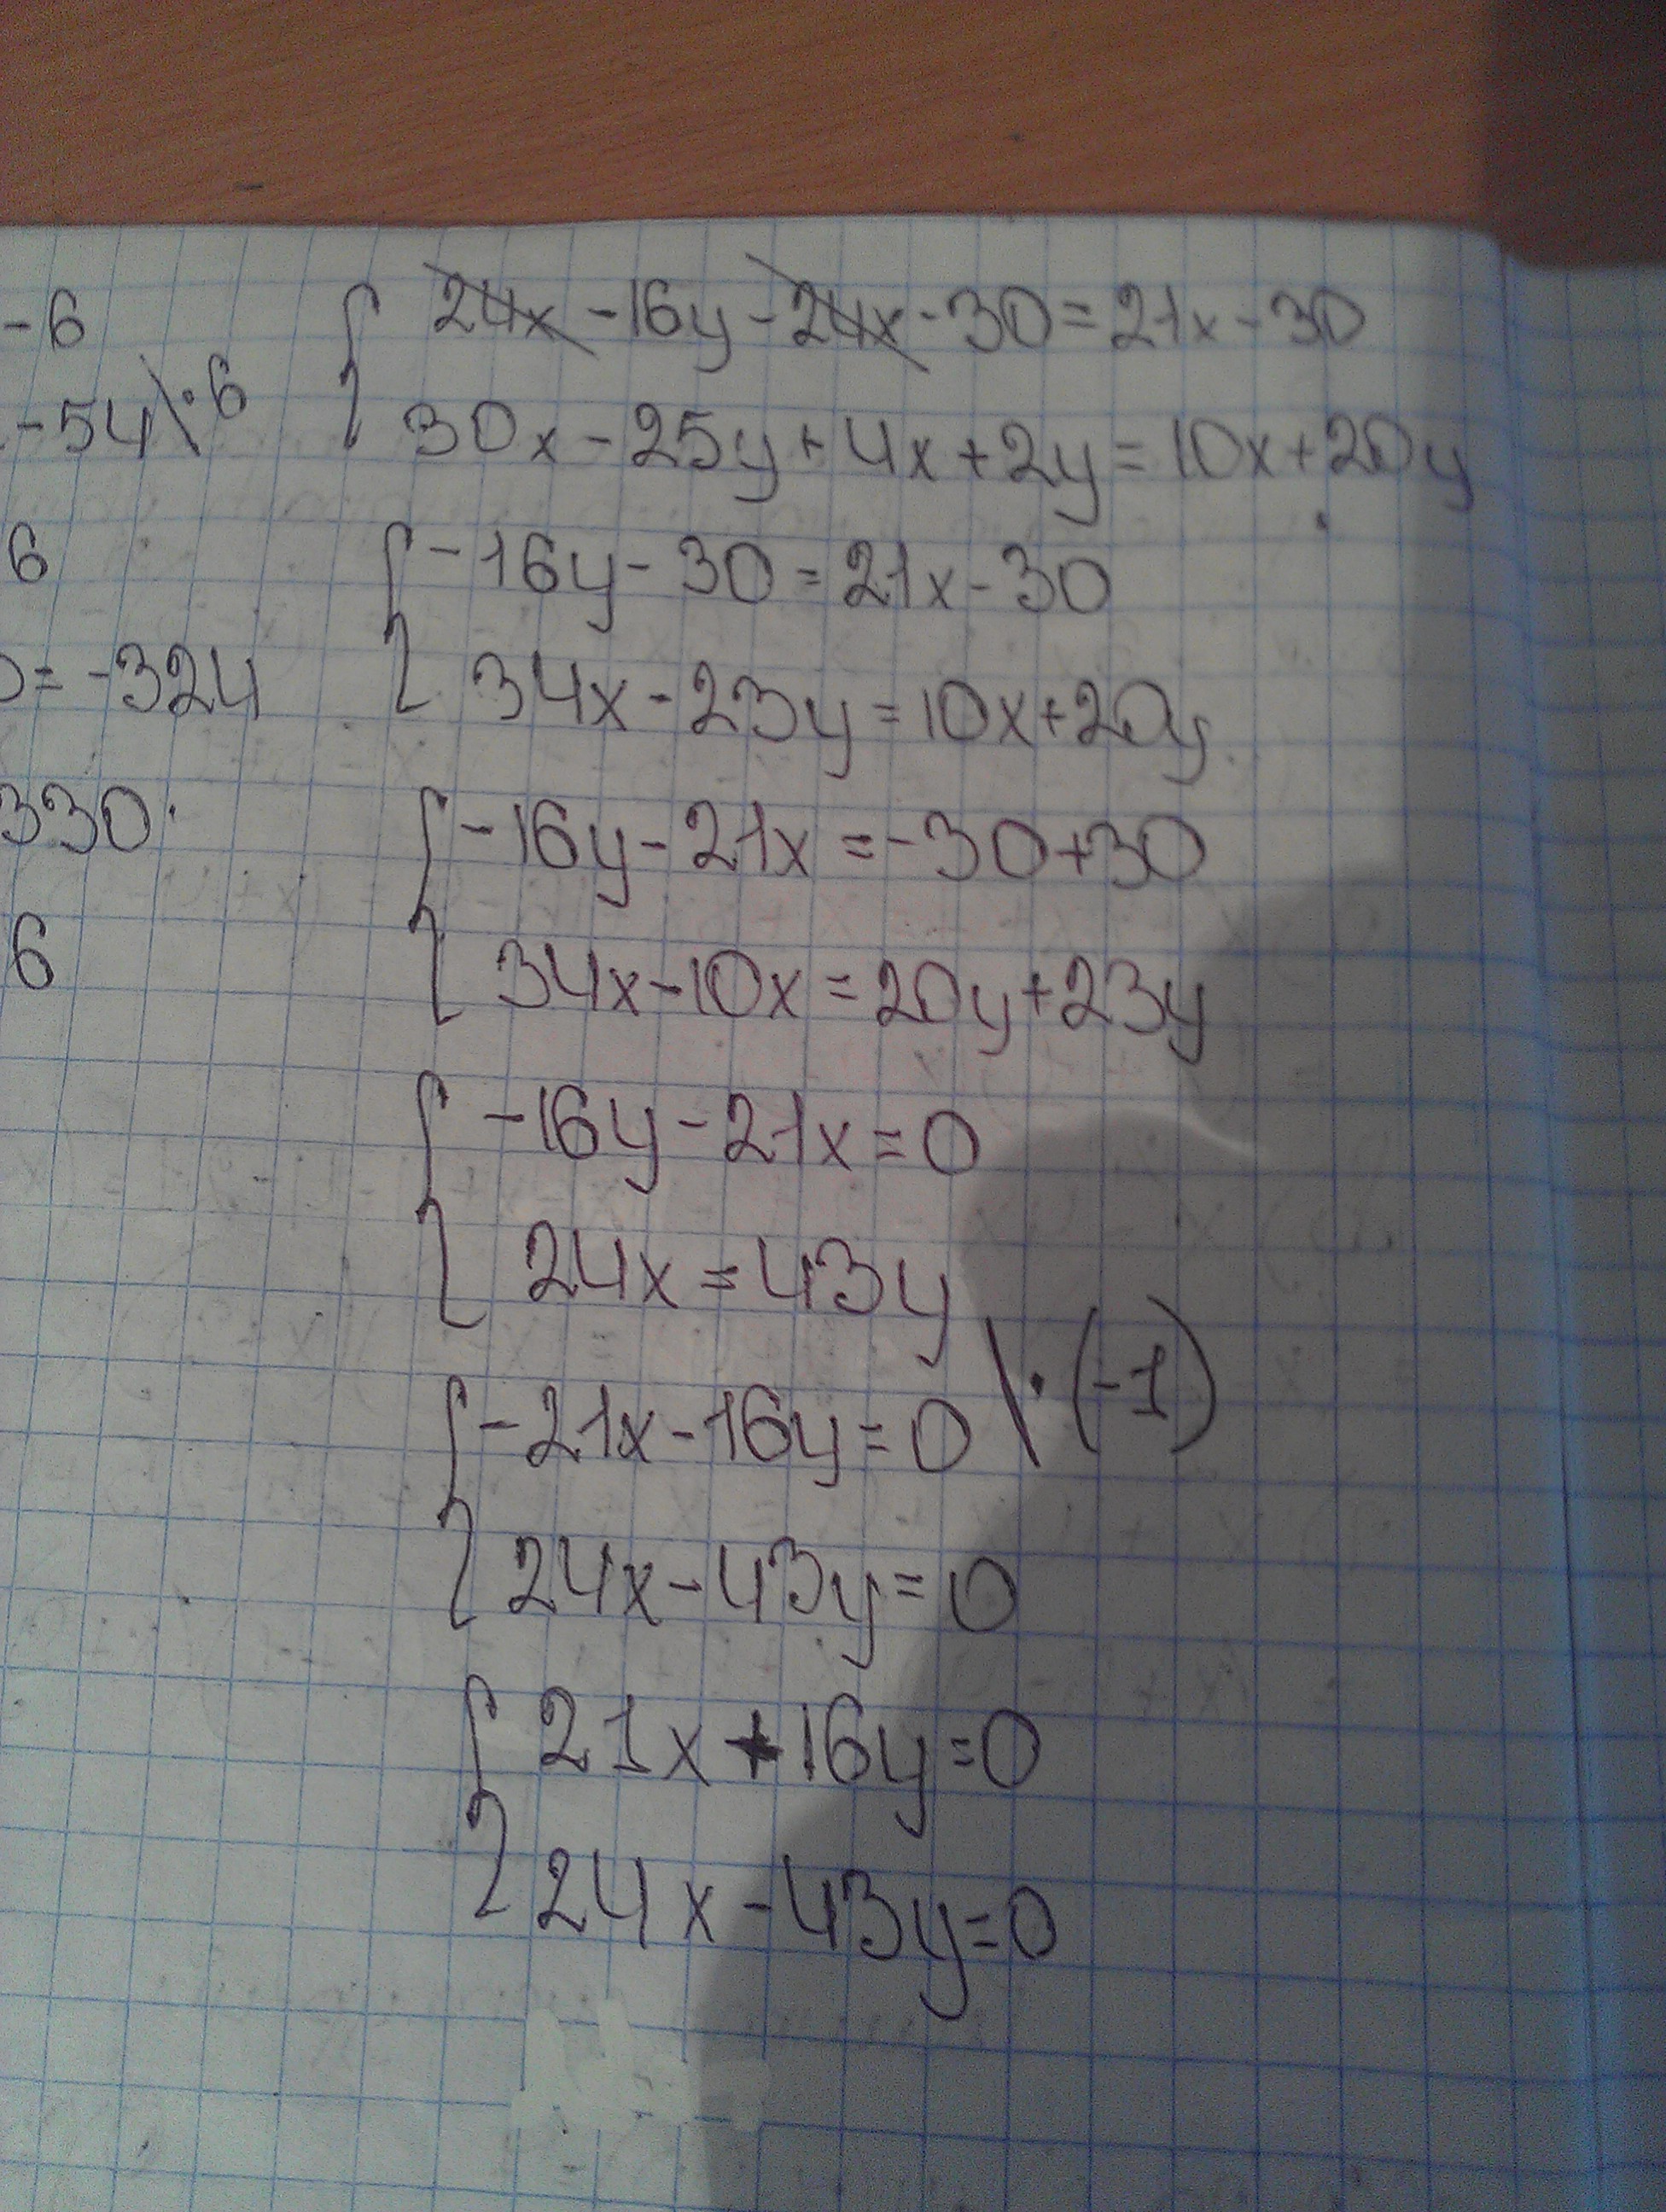 -6
-54 \ ·6
6
0= -324
330·
6
24x - 16y - 24x - 30 = 21x - 30
30x - 25y + 4x + 2y = 10x + 20y
-16y - 30 = 21x - 30
34x - 23y = 10x + 20y
-16y - 21x = -30 + 30
34x - 10x = 20y + 23y
-16y - 21x = 0
24x = 43y
-21x - 16y = 0 \ · (-1)
24x - 43y = 0
21x + 16y = 0
24x - 43y = 0